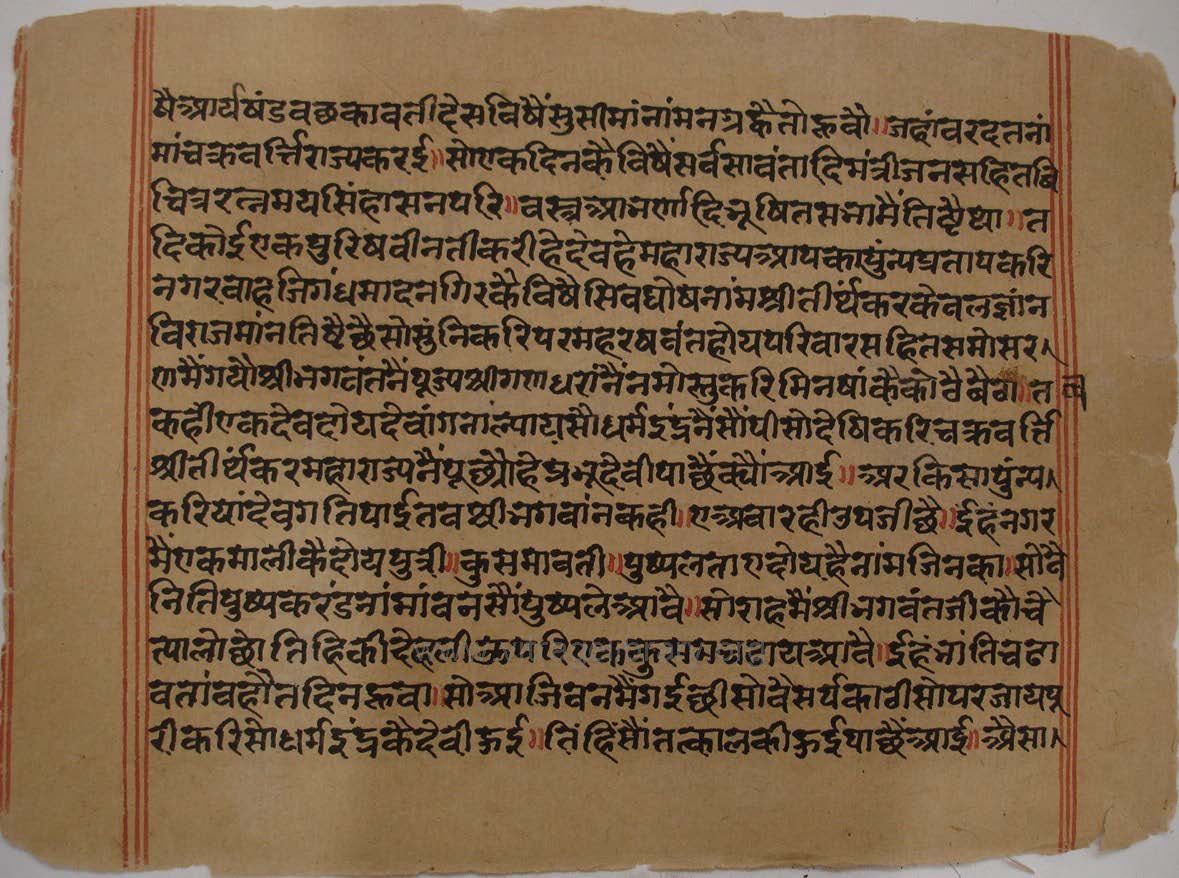 षैआर्यषंडवछकावतीदेसविषैंसुसीमांनांमनग्रहैतोह्रवौ॥जहांवरदतनां
मांचक्रवर्त्तिराज्यकरई॥सोएकदिनकैविषैंसर्वसावंतादिमंत्रीजनसहितबि
चित्ररत्नमयसिंहासनपरि॥वस्त्रआभर्णादिभूषितसभामैंतिष्टैथा॥त
दिकोईएकपुरिषवीनतीकरीहेदेवहेमहाराज्यआपकापुंन्यप्रतापकरि
नगरवाहजिगंधमादनगिरकैविषैसिवघोषनांमश्रीतीर्थंकरकेवलज्ञांन
विराजमांनतिष्टैछैसोसुंनिकरिपरमहरषवंतहोयपरिवारसहितसमोसर।
णमैंगयौश्रीभगवंतनैंपूज्यश्रीगणधरांनैंनमोस्तुकरिमिनषांकैकोठैबैठा॥त
कहीएकदेवदोयदेवांगनांल्यायसौधर्मइंद्रनैंसौंपीसोदेषिकरिचक्रवर्त्ति
श्रीतीर्थंकरमहाराज्यनैंपूछ्यौहेप्रभुदेवीपाछैंक्यौंआई॥अरकिसापुंन्य।
करियांदेवगतिपाईतवश्रीभगवांनकही॥एअवारहीउपजीछै॥ईहंनगर
मैंएकमालीकैदोयपुत्री॥कुसमावती॥पुष्पलताएदोयहैनांमजिनका॥सोवै
नितिपुष्पकरंडनांमांवनसौंपुष्पलेआवै॥सोराहमैंश्रीभगवंतजीकौचै
त्यालोछोतिहिकीदेहलीऊपरिएकएककुसमचढायआवै॥ईहंभांतिचढा
वतांवहौतदिनह्रवा॥सोआजिवनमैंगईछीसोवैसर्यकाठीसोपरजायपू
रीकरिसोधर्मइंद्रकैदेवीऊई॥तिंहिंसौंतत्कालकीऊईपाछैंआई॥अैसा।